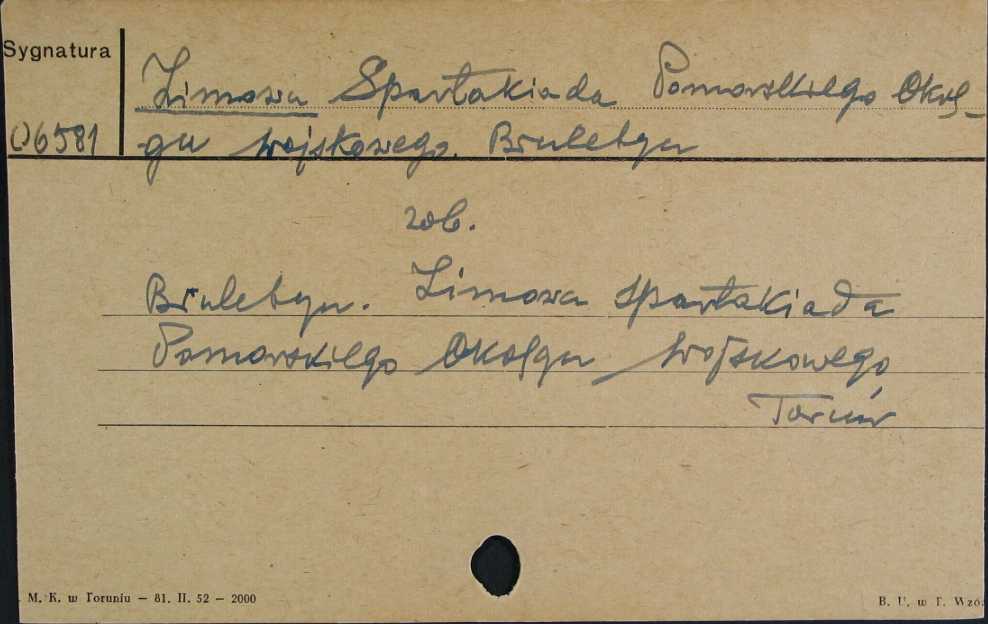 Sygnatura
Zimowa Spartakiada Pomorskiego Okrę-
06581 gu Wojskowego. Biuletyn
zob.
Biuletyn. Zimowa Spartakiada
Pomorskiego Okręgu Wojskowego,
Toruń
M. K. w Toruniu — 81. II. 52 — 2000
B. U. w T. Wzó